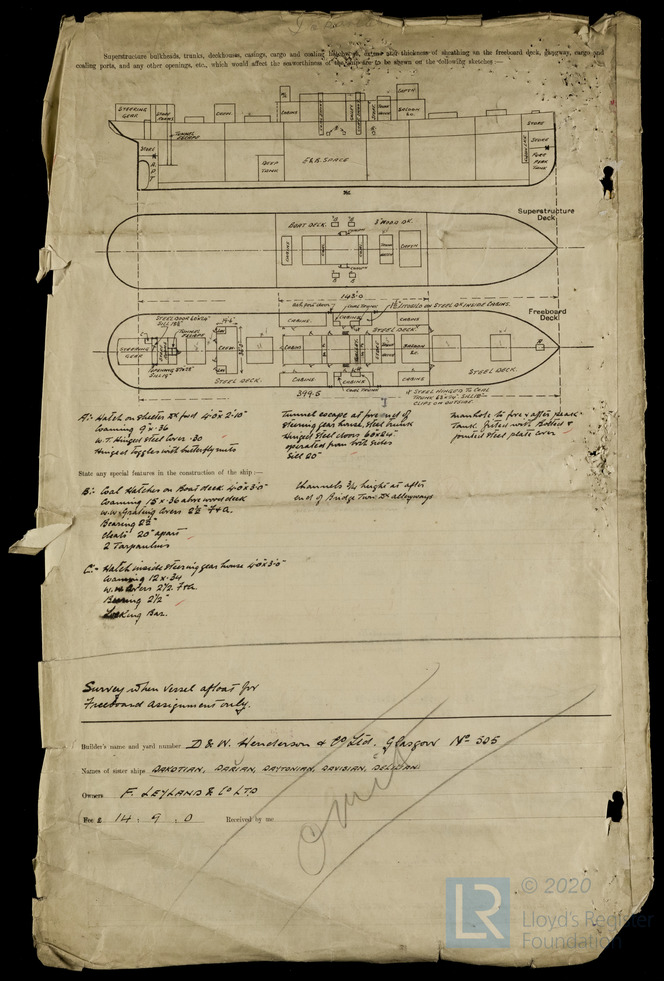 Superstructure bulkheads, trunks, deckhouses, casings, cargo and coaling hatchways, extent and thickness of sheathing on the freeboard deck, gangway, cargo and
coaling ports, and any other openings, etc., which would affect the seaworthiness of the ship are to be shewn on the following sketches:—
STEERING GEAR
STORE ROOMS
CREW
CABINS
SALOON &c.
CAPTN
STORE
TUNNEL ESCAPE
STORE
STORE
A.P.T
DEEP TANK
E & B. SPACE
FORE PEAK TANK
Superstructure Deck.
BOAT DECK.
3" WOOD DK.
CABINS
CAPTN
143'.0
Freeboard Deck
STEEL DOOR 60"x24"
SILL 18½"
TUNNEL ESCAPE
CABINS.
CABINS
CABINS
STEEL DECK
STEERING GEAR
CREW
CABIN
GALLEY
STORE
SALOON &c.
STEEL DECK.
STEEL DECK.
CABINS
CABINS
COAL TRUNK
CABINS
399.5
4 STEEL HINGED TO COAL
CLIPS ON OUTSIDE.
A:- Hatch on shelter Dk fwd 4.0 x 2.10"
Coaming 9" x .36
W.T. Hinged steel cover .30
Hinged toggles with butterfly nuts
Tunnel escape at fore end of
steering gear house, steel trunk
Hinged steel doors 60x24"
operated from both sides
Sill 20"
Manhole to fore & after peak
Tank fitted with Bolted &
jointed steel plate cover
State any special features in the construction of the ship:—
B:- Coal Hatches on Boat deck 4.0 x 3.0"
Coaming 15 x .36 above wood deck
W.W. Grating Covers 2½" F & A.
Bearing 2½"
Cleats 20" apart
2 Tarpaulins
Channels ¾ height at after
end of Bridge Twn Dk alleyways
C:- Hatch inside steering gear house 4.0 x 3.0"
Coaming 12 x .34
W.W Covers 2½ F & A.
Bearing 2½"
Locking Bar.
Survey when vessel afloat for
Freeboard Assignment only.
Builder's name and yard number D & W. Henderson & Co Ltd. Glasgow No 505
Names of sister ships DAKOTIAN, DARIAN, DAYTONIAN, DAVISIAN, DELILIAN
Owners F. LEYLAND & Co LTD
Fee £ 14 . 9 . 0 Received by me
omit
LR
© 2020
Lloyd's Register
Foundation